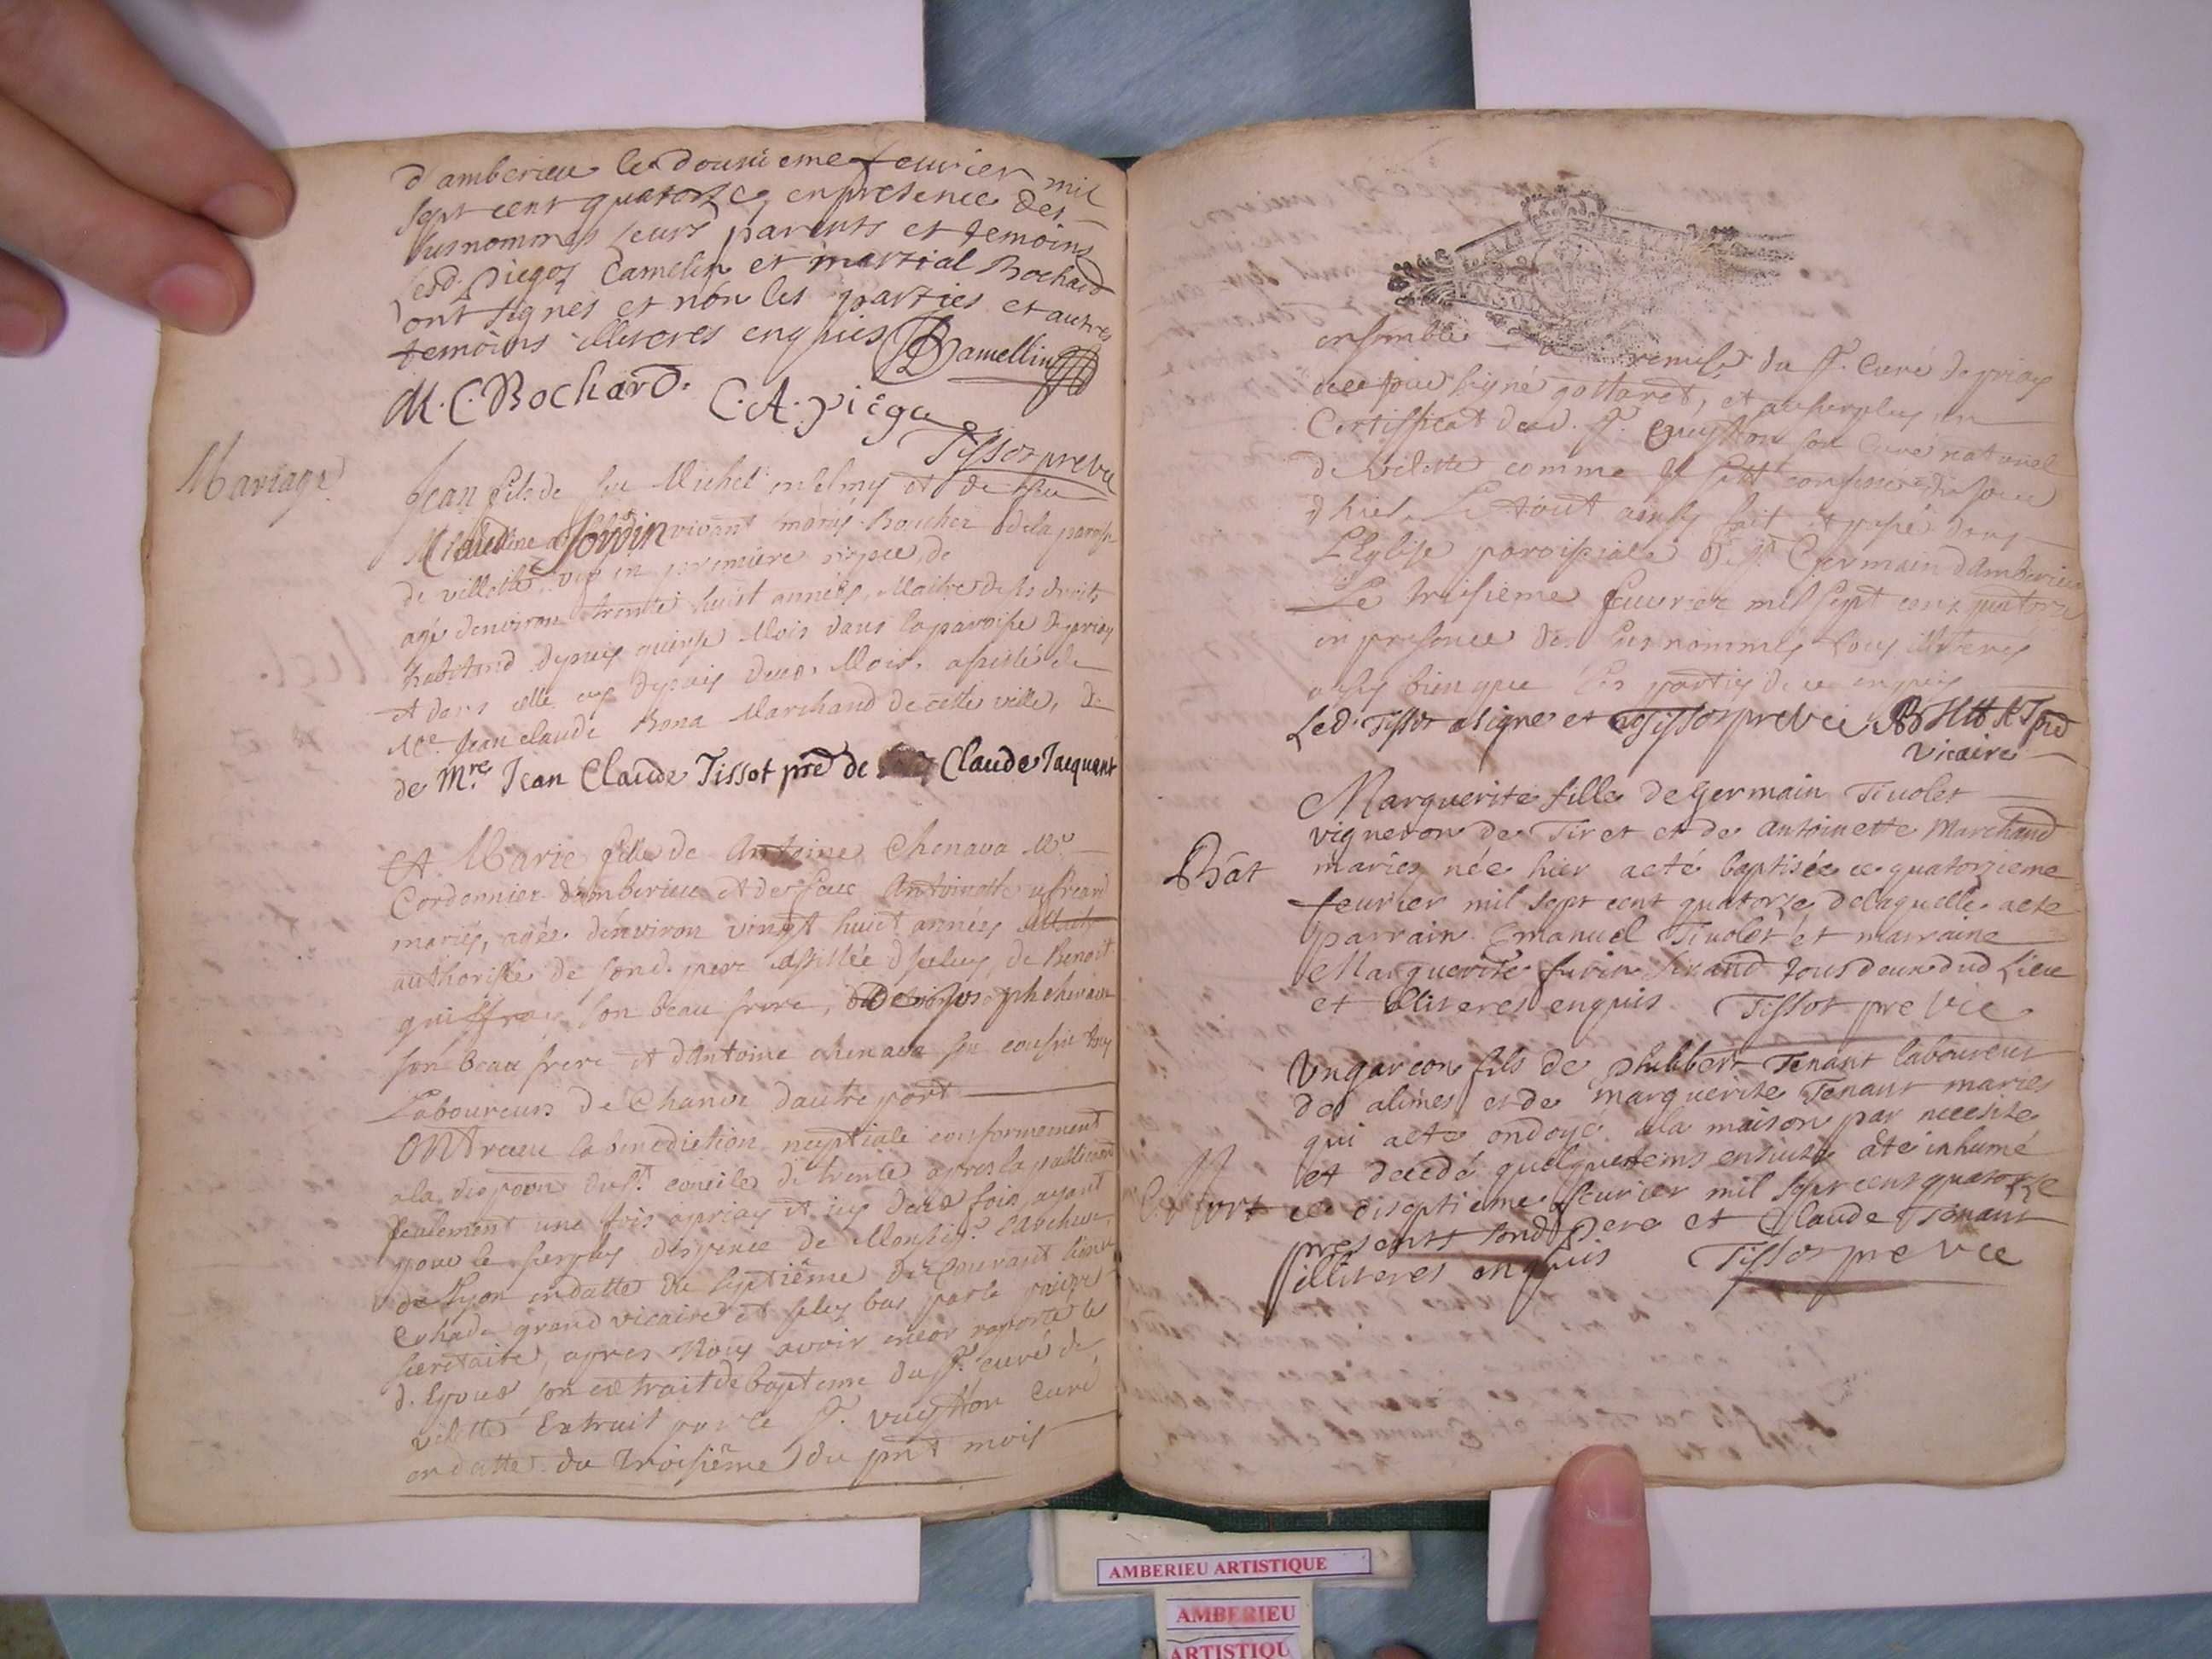 d'amberieu le dousieme feurier mil
sept cent quatorze enpresence des
susnommes leurs parents et temoins
lesd. piegoz Camelin et martial Bochard
ont signés et non les parties et autres
temoins illiteres enquis Bamellin
M. C. Bochard. C. A. piegu
Tissot pre vic
Mariage
Jean fils de feu Michel et de feu
vivant mariés Boucher de la paroisse
de villette en premiere de
agé denviron trente huict années, Maitre de ses droits
habitand depuis quinze Mois dans la paroisse de priay
et dans celle cy depuis deux Mois, assisté de
Me. Jean claude Bona Marchand de cette ville, de
de Mre Jean Claude Tissot pre de Claude Jacquant
Et Marie fille de Antoine Chenava Me
Cordonnier d'amberieu et de feue Antoinette
mariés, agée denviron vingt huict années
authorisée de sond. pere assistée diceluy, de Benoit
guiffray son beau frere, de joseph chenava
son beau frere et d'Antoine chenava son cousin tous
Laboureurs de Chanve dautre part
Ont receu la benediction nuptiale conformement
a la dispoon du St. concile de trente apres la publication
seulement une fois a priay et icy deux fois, ayant
pour le surplus dispence de Monseigr. L'archeve.
de Lyon en datte du septième du Courant signée
grand vicaire et plus bas par le
secretaire, apres Nous avoir encor raporté le
d. Epoux son extrait de bapteme du Sr. curé de
vilette Extrait par le Sr. vuytton Curé
en datte du troisiême du pnt mois
ensemble remise du Sr. Curé de priay
signé gottaret, et au surplus un
Certifficat dud. Sr. son Curé naturel
de vilette comme il sest confessé
d'hier. Le tout ainsy fait et passé dans
L'Eglise paroissiale de St. Germain d'Amberieu
Le treisieme feuvrier mil sept cent quatorze
en presence des susnommés tous illiteres
aussy bien que les parties de ce enquis
Led. Tissot a signé et Tissot pre vic
vicaire
Marguerite fille de germain Tivolet
vigneron de Tiret et de antoinette Marchand
Bât
mariés née hier aeté baptisée ce quatorzieme
feurier mil sept cent quatorze delaquelle aete
parrain Emanuel Tivolet et marraine
Marguerite tous deux dud Lieu
et illiteres enquis Tissot pre vic
Un garcon fils de philibert Tenant laboureur
des alimes et de marguerite Tenant mariés
qui aete ondoyé ala maison par necesite
et decedé quelquetems ensuite aété inhumé
Mort
ce diseptieme feurier mil sept cent quatorze
presents sond pere et Claude Tenant
illiteres enquis Tissot pre vic
AMBERIEU ARTISTIQUE
AMBERIEU
ARTISTIQU